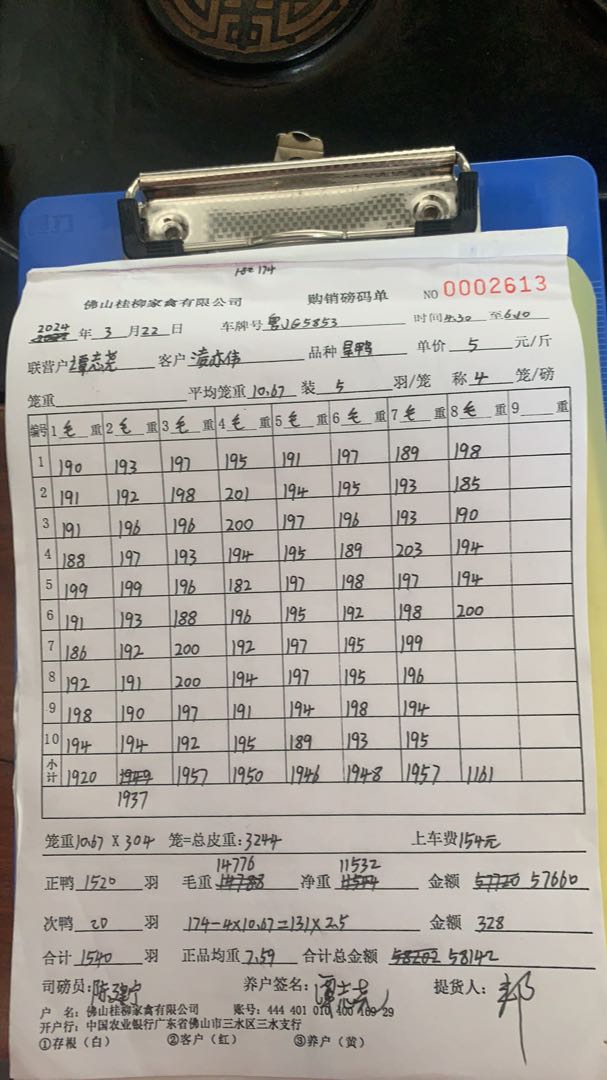 182 174
佛山桂柳家禽有限公司 购销磅码单 NO 0002613
2024年3月22日 车牌号 粤JG5853 时间4:30至6:10
联营户 谭志尧 客户 品种 呈鸭 单价 5 元/斤
笼重 平均笼重10.67 装 5 羽/笼 称 4 笼/磅
编号 1毛重 2毛重 3毛重 4毛重 5毛重 6毛重 7毛重 8毛重 9重
1 190 193 197 195 191 197 189 198
2 191 192 198 201 194 195 193 185
3 191 196 196 200 197 196 193 190
4 188 197 193 194 195 189 203 194
5 199 199 196 182 197 198 197 194
6 191 193 188 196 195 192 198 200
7 186 192 200 192 197 195 199
8 192 191 200 194 197 195 196
9 198 190 197 191 194 198 194
10 194 194 192 195 189 193 195
小计 1920 1949 1957 1950 1946 1948 1957 1161
1937
笼重10.67×304 笼=总皮重:3244 上车费154元
14776 11532
正鸭 1520 羽 毛重 14788 净重 11544 金额 57720 57660
次鸭 20 羽 174-4×10.67=131×2.5 金额 328
合计 1540 羽 正品均重 7.59 合计总金额 58202 58142
司磅员: 养户签名: 提货人:
户 名: 佛山桂柳家禽有限公司 账号: 444 401 010 400 169 29
开户行: 中国农业银行广东省佛山市三水区三水支行
①存根(白) ②客户(红) ③养户(黄)